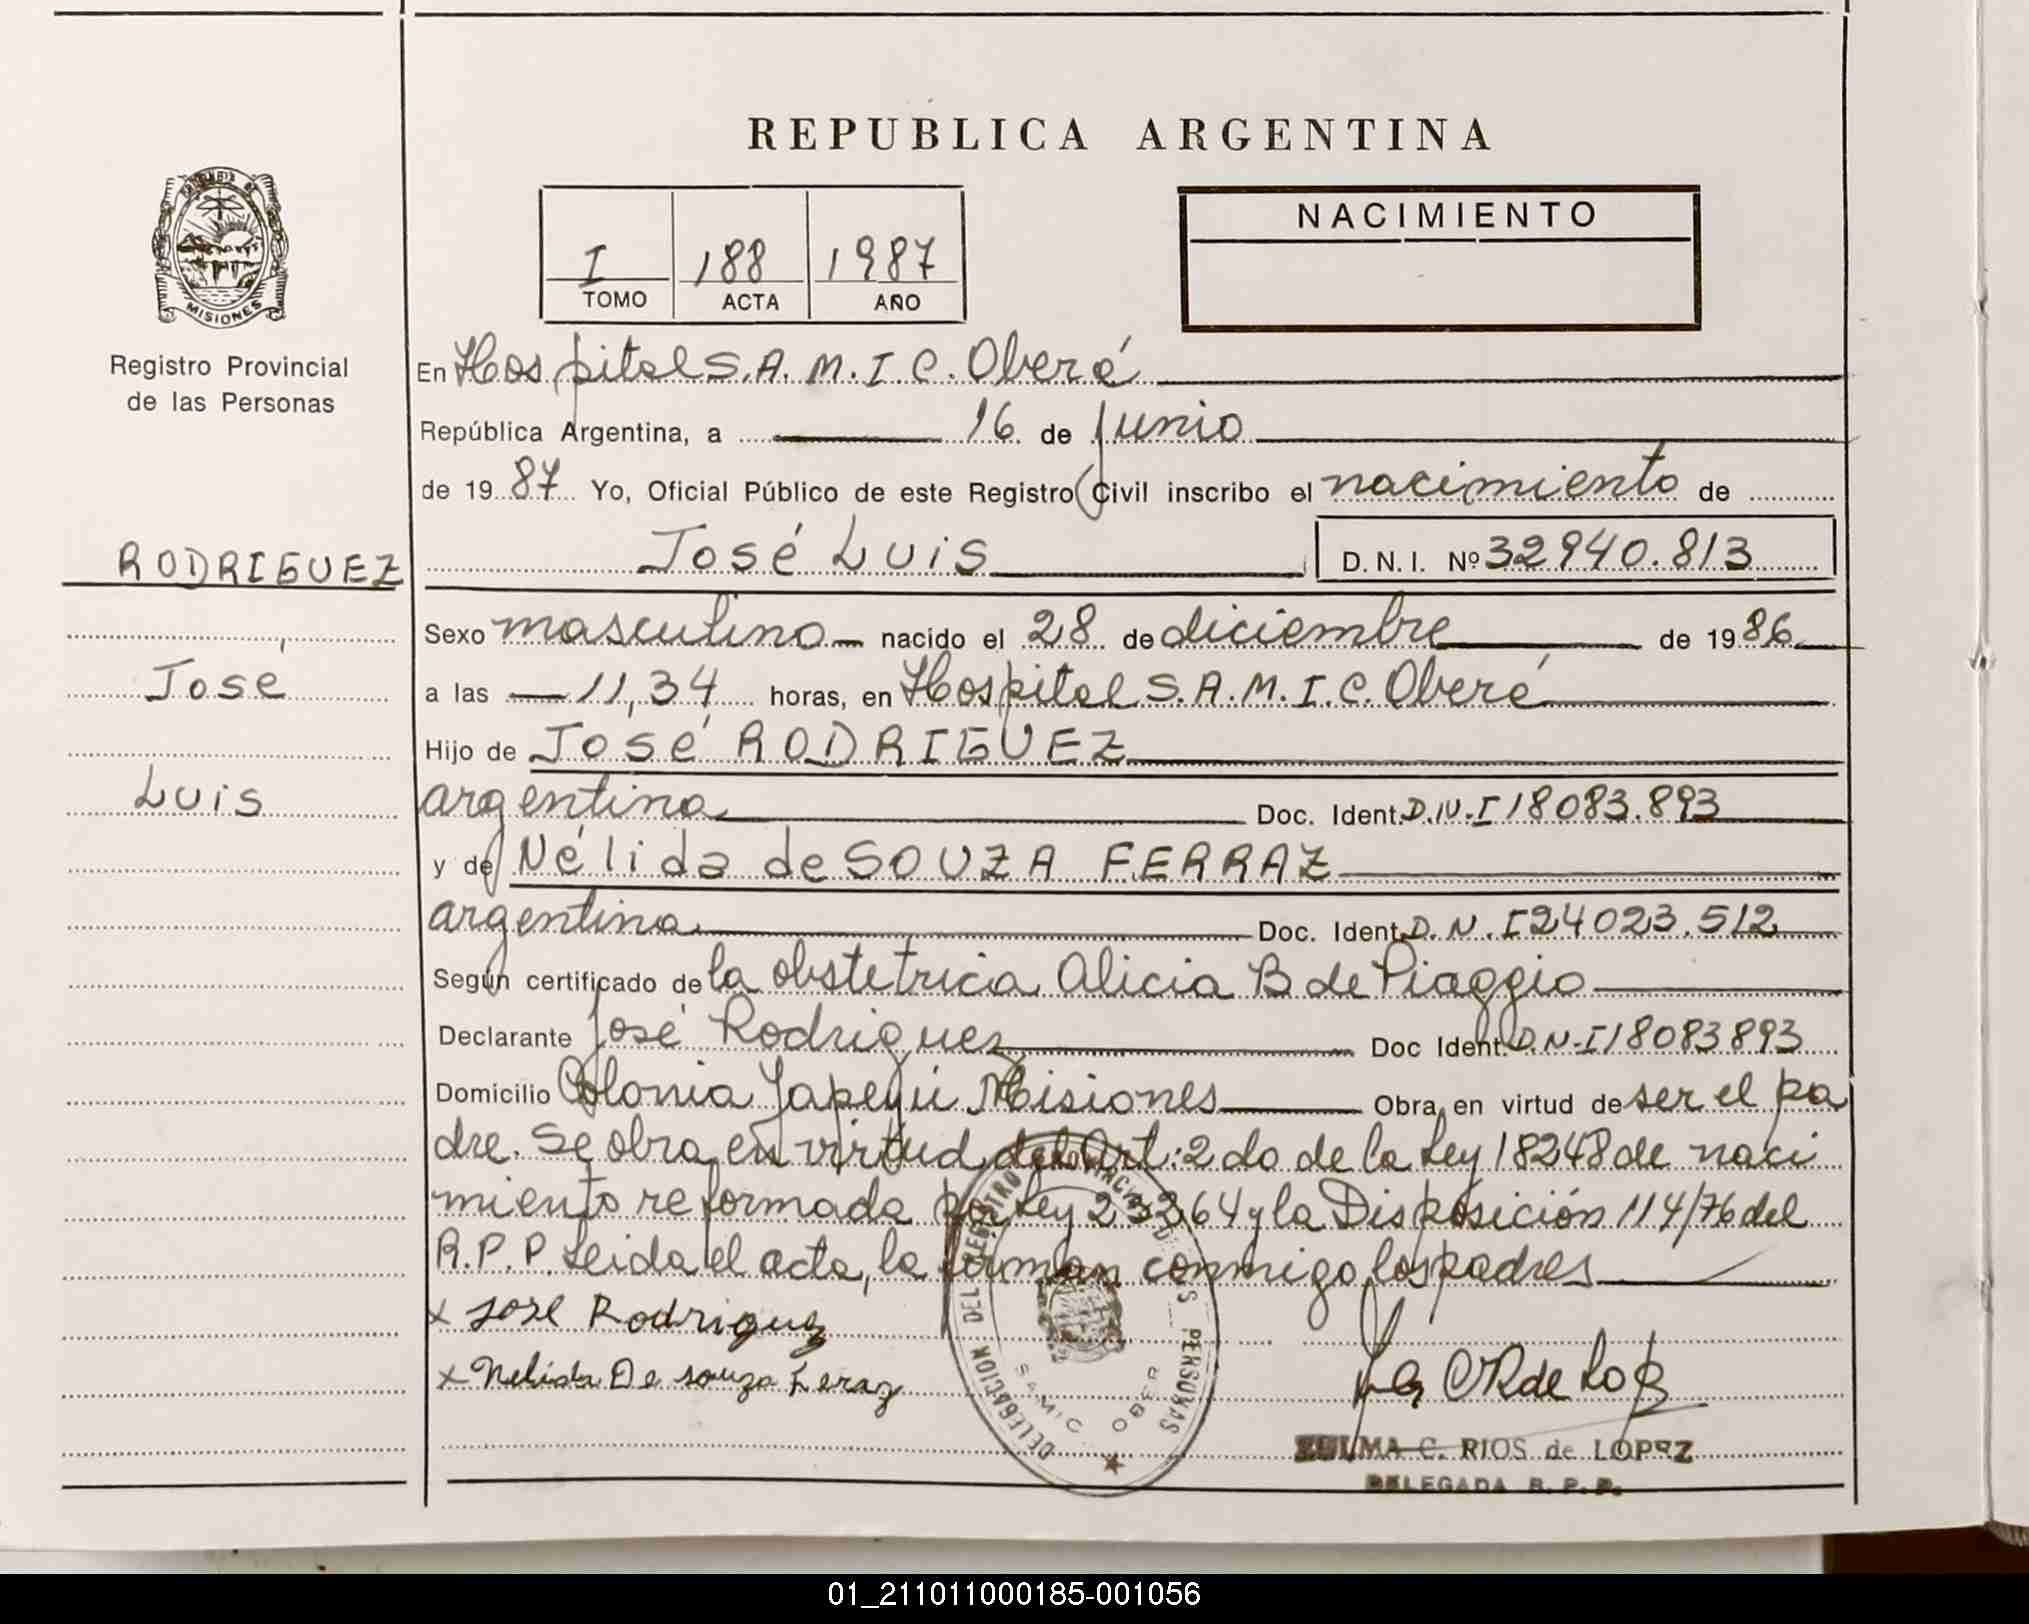 REPUBLICA ARGENTINA
I 188 1987
TOMO ACTA AÑO
NACIMIENTO
MISIONES
Registro Provincial
de las Personas
RODRIGUEZ
José
Luis
En Hospital S.A.M.I.C. Oberá
República Argentina, a 16 de Junio
de 1987 Yo, Oficial Público de este Registro Civil inscribo el nacimiento de
José Luis D.N.I. Nº 32940.813
Sexo masculino nacido el 28 de diciembre de 1986
a las 11,34 horas, en Hospital S.A.M.I.C. Oberá
Hijo de José RODRIGUEZ
argentina Doc. Ident. D.N.I 18083.893
y de Nélida de SOUZA FERRAZ
argentina Doc. Ident. D.N.I 24023.512
Según certificado de la obstetricia Alicia B de Piaggio
Declarante José Rodriguez Doc Ident. D.N.I 18083893
Domicilio Colonia Yapeyú Misiones Obra en virtud de ser el pa
dre. Se obra en virtud del Art: 2do de la Ley 18248 de naci
miento reformada por Ley 23264 y la Disposición 114/76 del
R.P.P. Leida el acta, la firman conmigo los padres
x Jose Rodriguez
x Nelida De souza Feraz
DELEGACION DEL REGISTRO DE LAS PERSONAS
SAMIC OBER
ZULMA C. RIOS de LOPEZ
DELEGADA R. P. P.
01_211011000185-001056